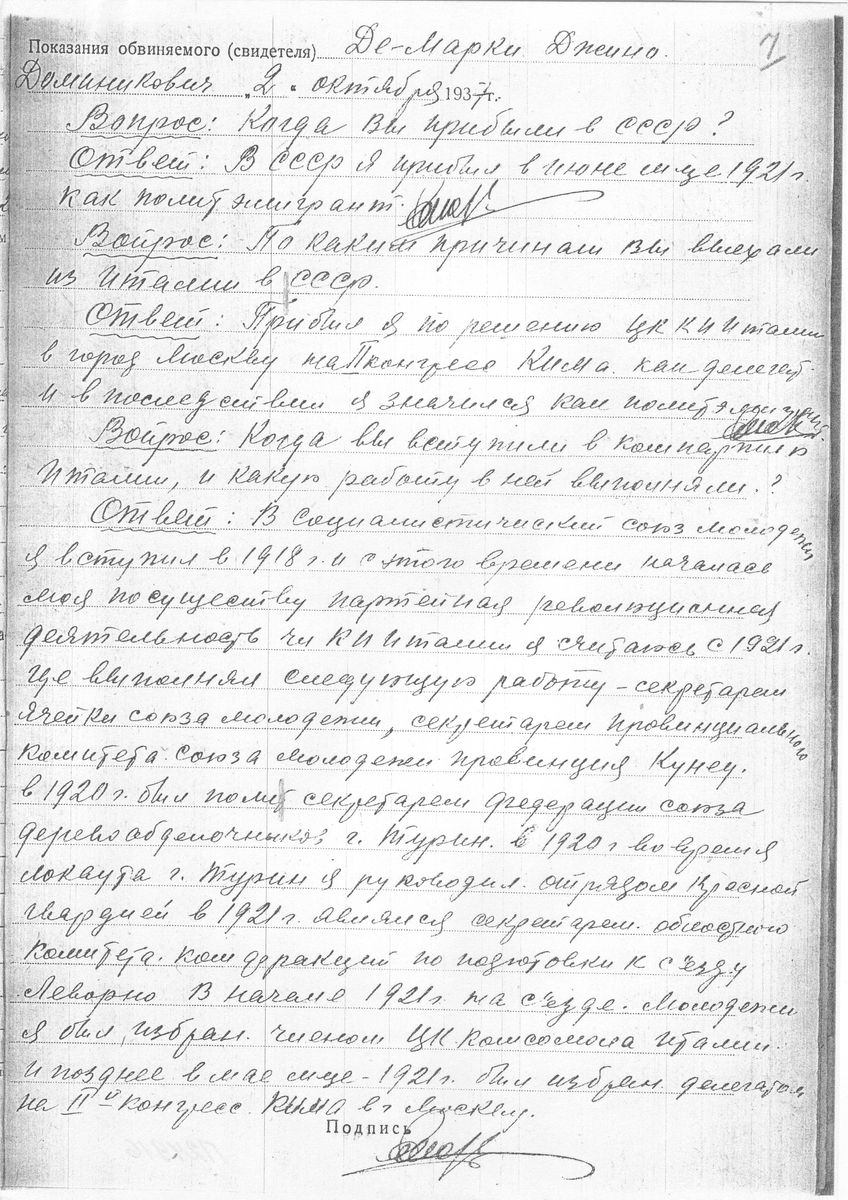 7
Показания обвиняемого (свидетеля) Де-Марки Джино
Доминикович „2“ октября 1937г.
Вопрос: Когда вы прибыли в СССР?
Ответ: В СССР я прибыл в июне м-це 1921 г.
как политэмигрант.
Вопрос: По каким причинам вы выехали
из Италии в СССР.
Ответ: Прибыл я по решению ЦК КП Италии
в город Москву на II конгресс Кима. как делегат.
и в последствии я значился как политэмигрант.
Вопрос: Когда вы вступили в компартию
Италии, и какую работу в ней выполняли.?
Ответ: В социалистический союз молодежи
я вступил в 1918 г. и с этого времени началась
моя посуществу партейная революционная
деятельность чл КП Италии я считаюсь с 1921 г.
где выполнял следующую работу – секретарем
ячейки союза молодежи, секретарем провинциального
комитета союза молодежи провинция Кунеу.
в 1920 г. был полит секретарем федерации союза
деревообделочников г. Турин. в 1920 г во время
локаута г. Турин я руководил. отрядом Красной
гвардией в 1921 г. являлся секретарем. областного
комитета. комфракций по подготовки к съезду
Леворно В начале 1921 г. на съезде. молодежи
я был избран. членом ЦК комсомола Италии.
и позднее в мае м-це – 1921 г. был избран делегатом
на II й конгресс. Кима в г Москву.
Подпись